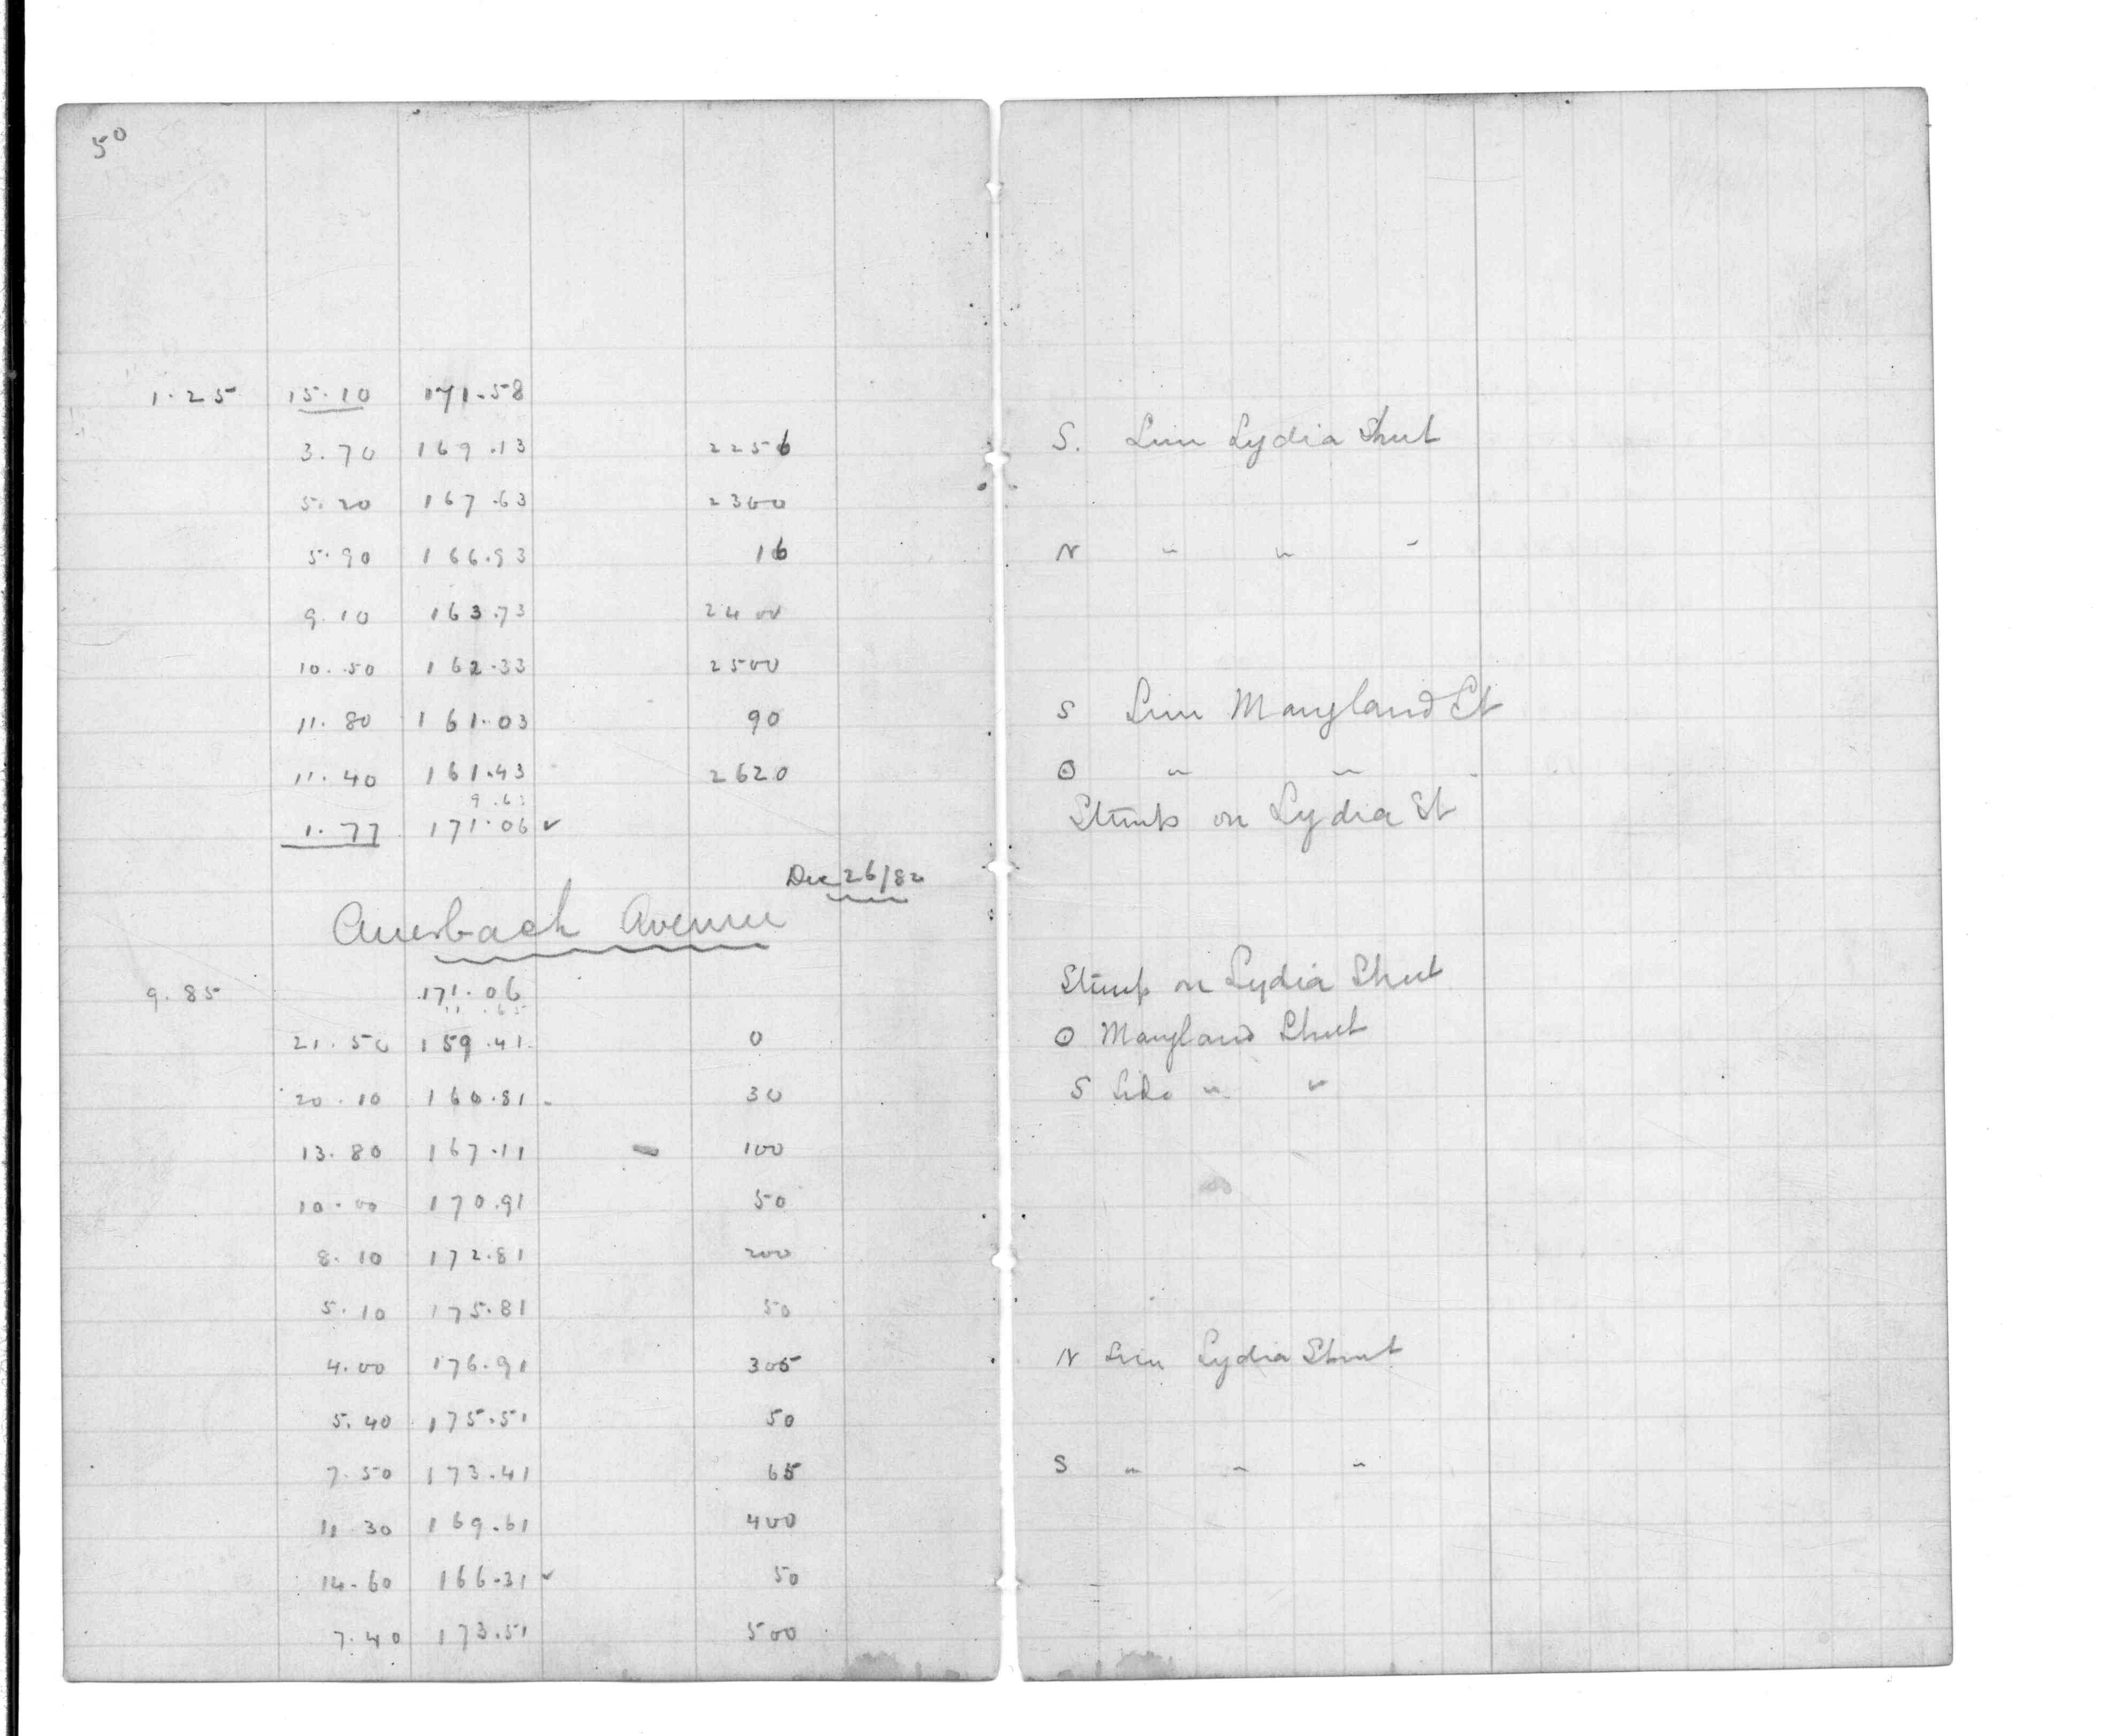 50
1.25 15.10 171.58
3.70 169.13 2256 S. Line Lydia Street
5.20 167.63 2300
5.90 166.93 16 N " " "
9.10 163.73 2400
10.50 162.33 2500
11.80 161.03 90 S Line Maryland St
11.40 161.43 2620 ⊙ " "
9.63
1.77 171.06 ✓ Stump on Lydia St
Dec 26/82
Auerbach Avenue
9.85 171.06 Stump on Lydia Street
11.65
21.50 159.41 0 ⊙ Maryland Street
20.10 160.81 30 S Side " "
13.80 167.11 100
10.00 170.91 50
8.10 172.81 200
5.10 175.81 50
4.00 176.91 305 N Line Lydia Street
5.40 175.51 50
7.50 173.41 65 S " " "
11.30 169.61 400
14.60 166.31 ✓ 50
7.40 173.51 500